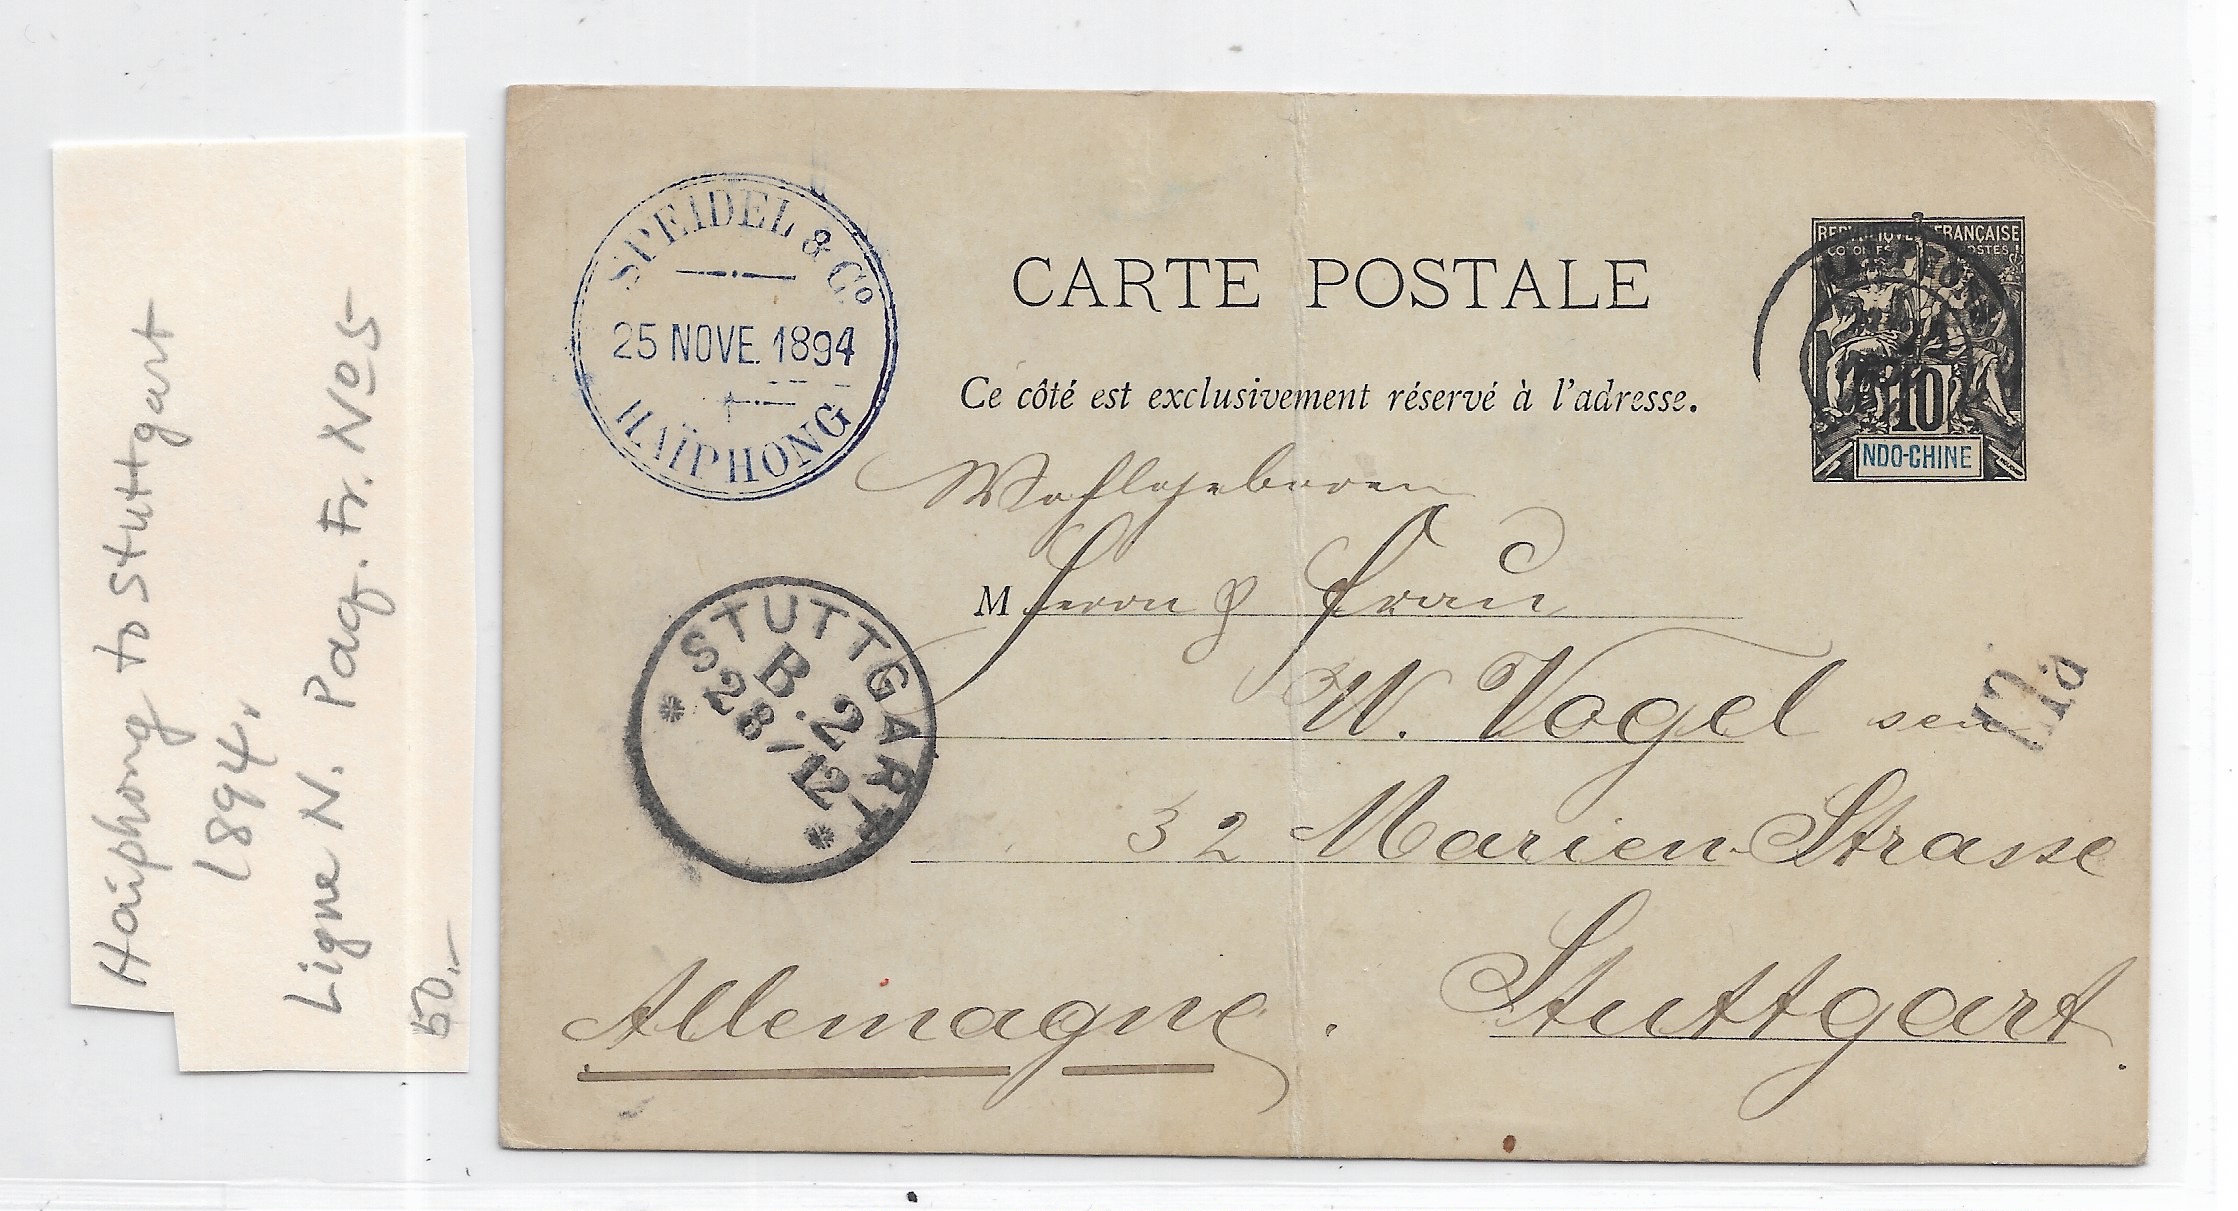 Haiphong to Stuttgart
1894,
Ligne N. Paq. Fr. No 5
50.-
SPEIDEL & Co
25 NOVE. 1894
HAÏPHONG
CARTE POSTALE
Ce côté est exclusivement réservé à l'adresse.
REPUBLIQUE FRANÇAISE
COLONIES POSTES
10
INDO-CHINE
Wohlgeboren
M Herrn & Frau
W. Vogel sen
32 Marien Strasse
Stuttgart.
Allemagne.
STUTTGART
B. 2
28/12